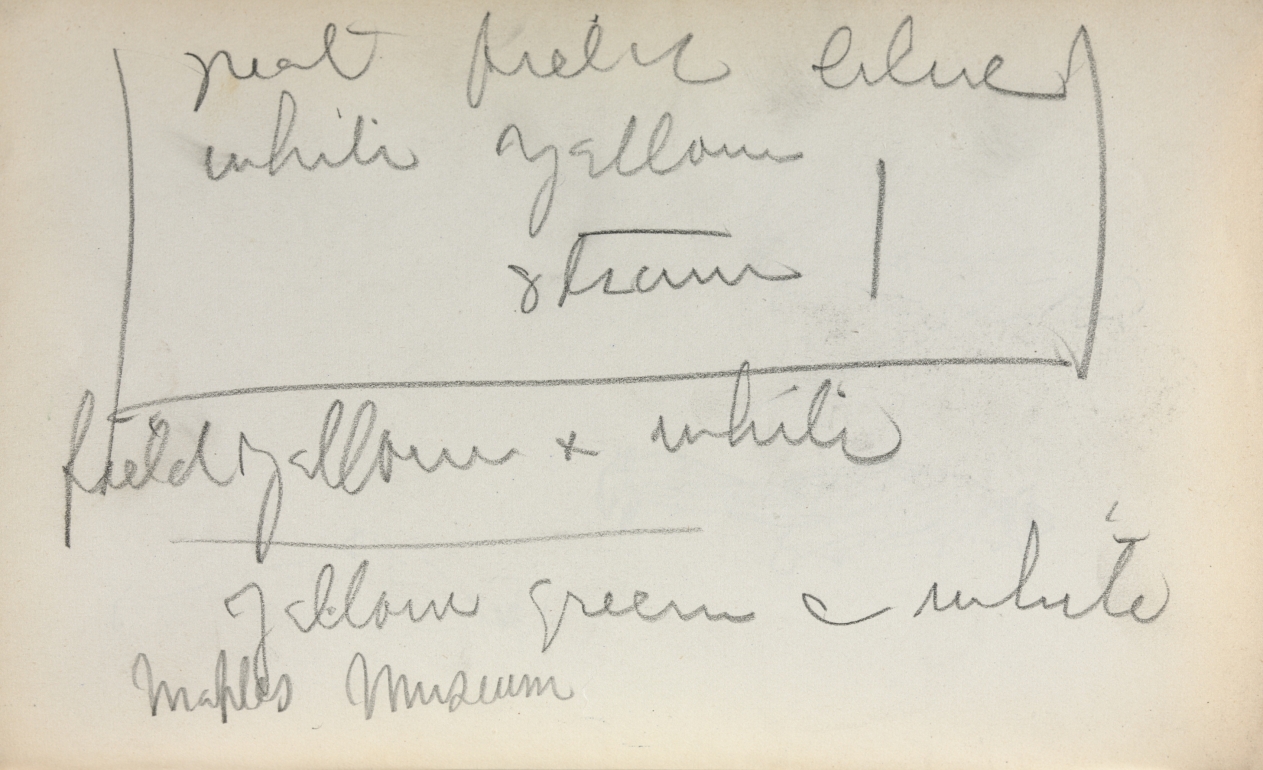 blue
white yellow
stream
field yellow & white
yellow green & white
Naples Museum